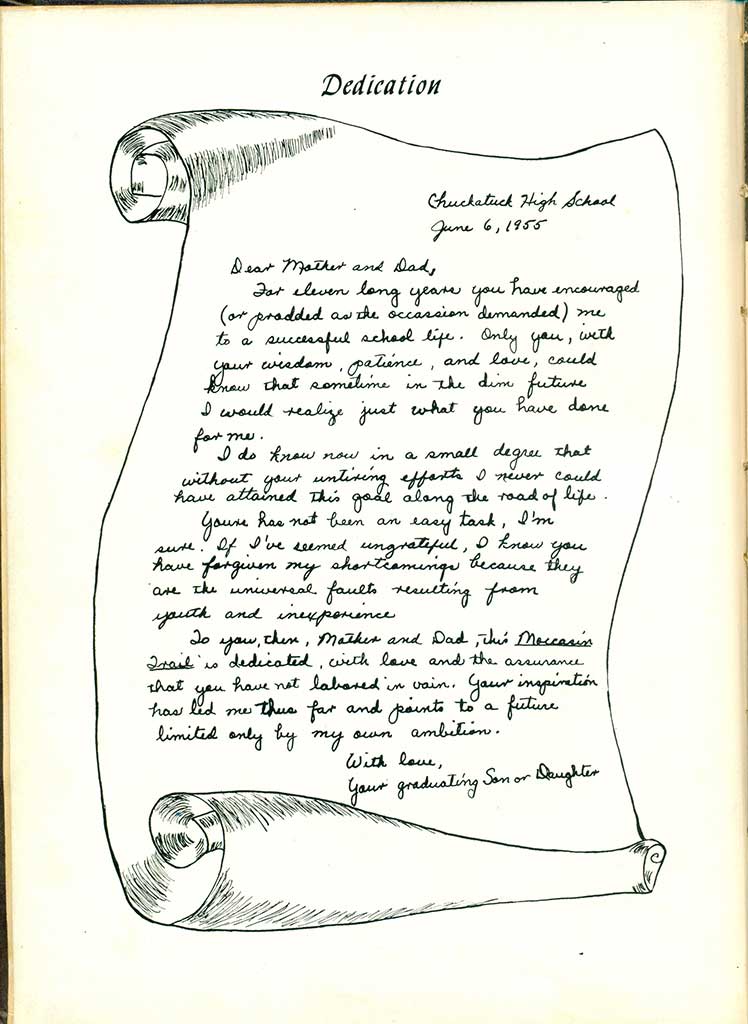 Dedication
Chuckatuck High School
June 6, 1955
Dear Mother and Dad,
For eleven long years you have encouraged
(or prodded as the occassion demanded) me
to a successful school life. Only you, with
your wisdom, patience, and love, could
know that sometime in the dim future
I would realize just what you have done
for me.
I do know now in a small degree that
without your untiring efforts I never could
have attained this goal along the road of life.
Yours has not been an easy task, I'm
sure. If I've seemed ungrateful, I know you
have forgiven my shortcomings because they
are the universal faults resulting from
youth and inexperience
To you, then, Mother and Dad, this Moccasin
Trail is dedicated, with love and the assurance
that you have not labored in vain. Your inspiration
has led me thus far and points to a future
limited only by my own ambition.
With love,
Your graduating Son or Daughter